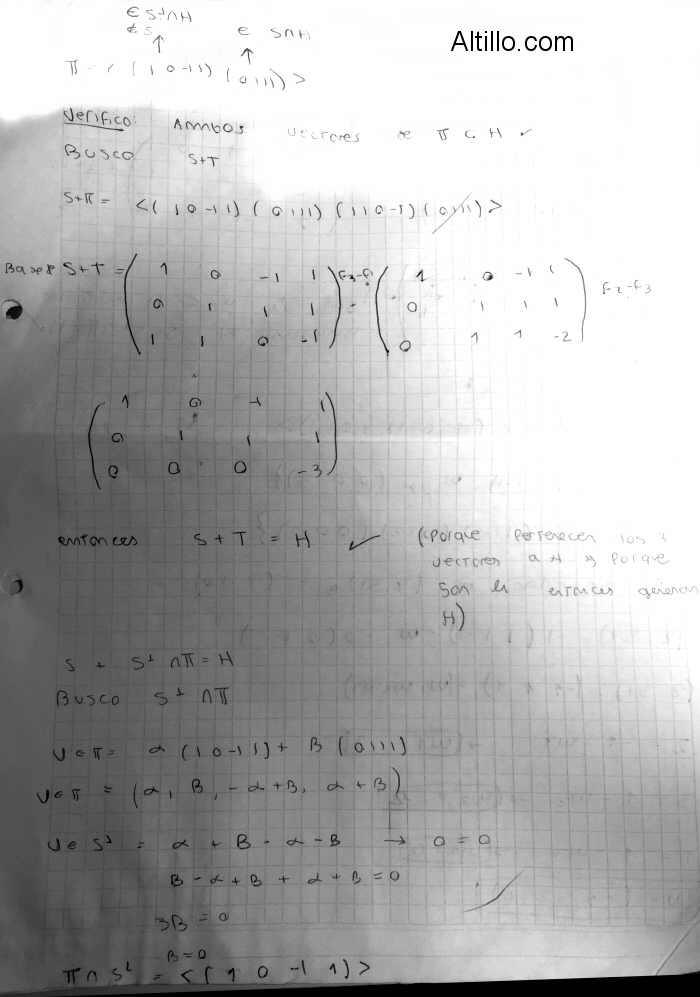 ∈ S⊥∩H
∉ S ∈ S∩H
Altillo.com
↑ ↑
π = < (1 0 -1 1) (0 1 1 1) >
Verifico: Ambos vectores de π ⊂ H ✓
Busco S+T
S+π = <(1 0 -1 1) (0 1 1 1) (1 1 0 -1) (0 1 1 1)>
Base S+T = ( 1 0 -1 1 ) F3-F1 ( 1 0 -1 1 ) F2-F3
0 1 1 1 0 1 1 1
1 1 0 -1 0 1 1 -2
( 1 0 -1 1
0 1 1 1
0 0 0 -3 )
entonces S+T = H ✓ (Porque pertenecen los 3
vectores a H y porque
son li entonces generan
H)
S + S⊥ ∩ π = H
Busco S⊥ ∩ π
v ∈ π = α (1 0 -1 1) + β (0 1 1 1)
v ∈ π = (α, β, -α+β, α+β)
v ∈ S⊥ = α + β - α - β → 0 = 0
β - α + β + α + β = 0
3β = 0
β = 0
π ∩ S⊥ = <(1 0 -1 1)>